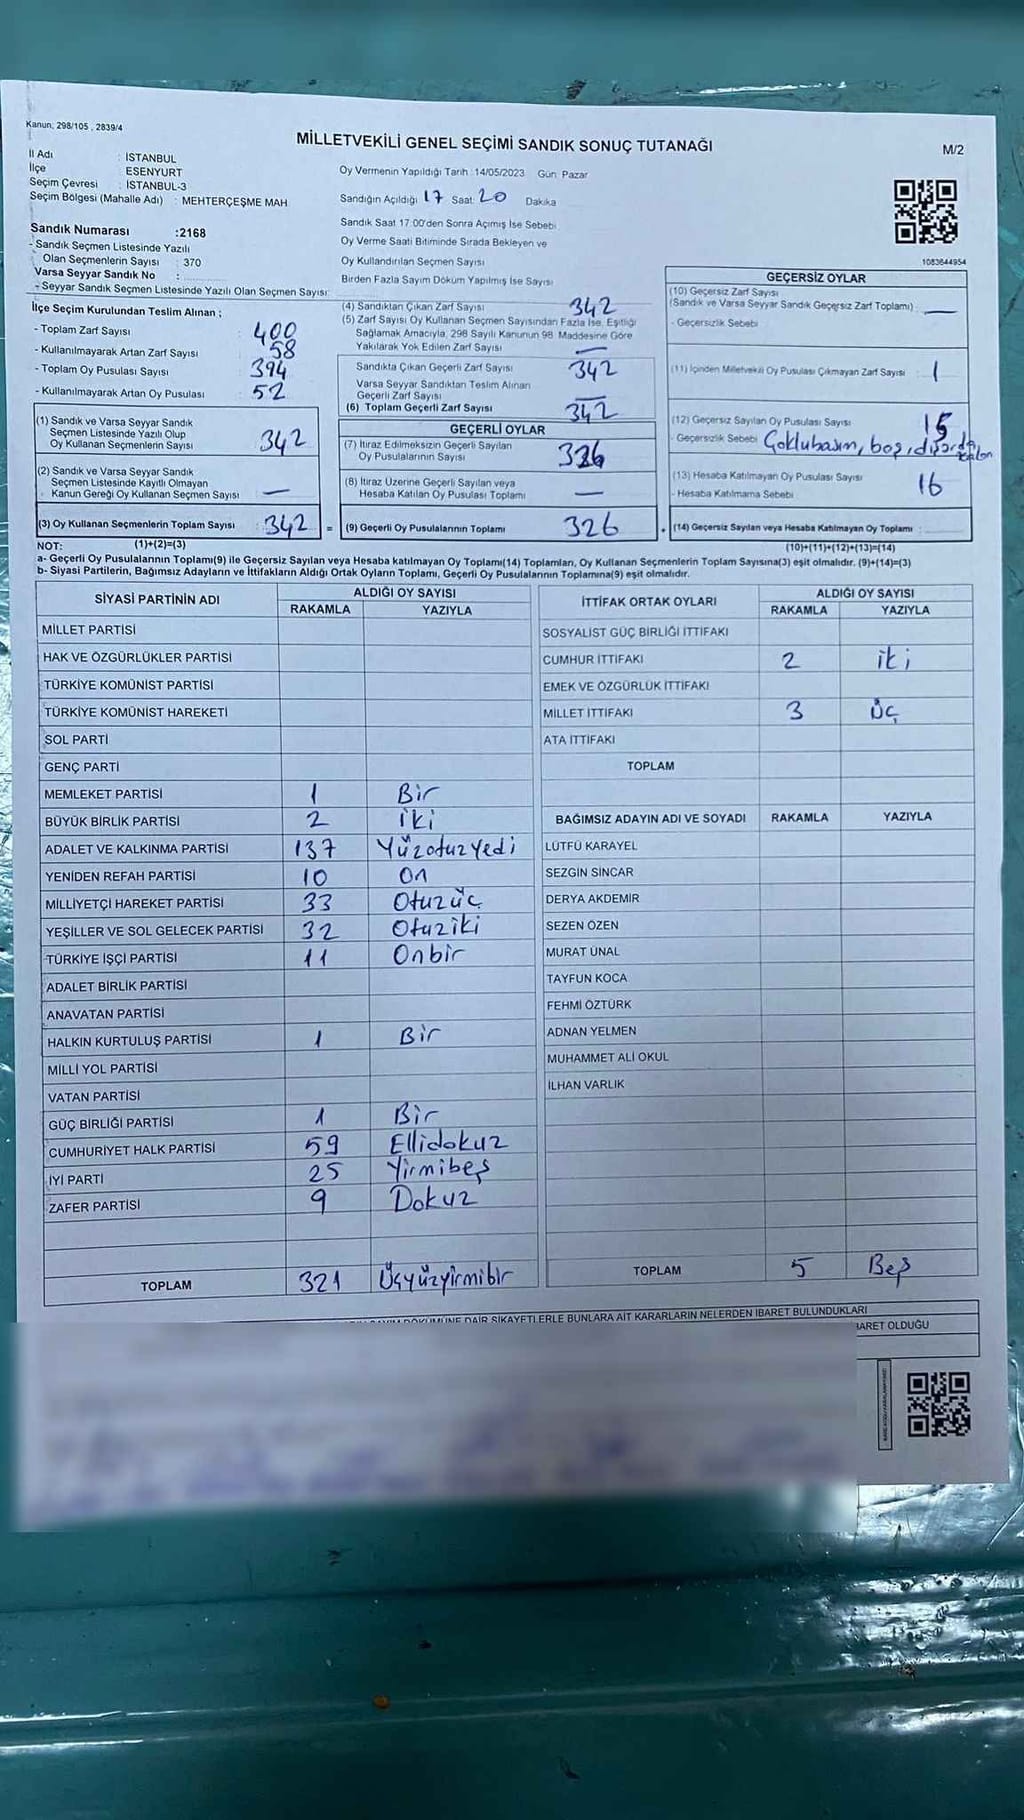 Kanun; 298/105 , 2839/4
MİLLETVEKİLİ GENEL SEÇİMİ SANDIK SONUÇ TUTANAĞI
M/2
İl Adı : İSTANBUL
İlçe : ESENYURT
Seçim Çevresi : İSTANBUL-3
Seçim Bölgesi (Mahalle Adı) : MEHTERÇEŞME MAH.
Sandık Numarası :2168
- Sandık Seçmen Listesinde Yazılı
Olan Seçmenlerin Sayısı : 370
Varsa Seyyar Sandık No :
- Seyyar Sandık Seçmen Listesinde Yazılı Olan Seçmen Sayısı:
Oy Vermenin Yapıldığı Tarih :14/05/2023 Gün: Pazar
Sandığın Açıldığı 17 Saat: 20 Dakika
Sandık Saat 17:00'den Sonra Açılmış İse Sebebi
Oy Verme Saati Bitiminde Sırada Bekleyen ve
Oy Kullandırılan Seçmen Sayısı
Birden Fazla Sayım Döküm Yapılmış İse Sayısı
1083644954
İlçe Seçim Kurulundan Teslim Alınan ;
- Toplam Zarf Sayısı 400
- Kullanılmayarak Artan Zarf Sayısı 58
- Toplam Oy Pusulası Sayısı 394
- Kullanılmayarak Artan Oy Pusulası 52
(1) Sandık ve Varsa Seyyar Sandık
Seçmen Listesinde Yazılı Olup
Oy Kullanan Seçmenlerin Sayısı 342
(2) Sandık ve Varsa Seyyar Sandık
Seçmen Listesinde Kayıtlı Olmayan
Kanun Gereği Oy Kullanan Seçmen Sayısı —
(3) Oy Kullanan Seçmenlerin Toplam Sayısı : 342 =
(1)+(2)=(3)
(4) Sandıktan Çıkan Zarf Sayısı 342
(5) Zarf Sayısı Oy Kullanan Seçmen Sayısından Fazla İse, Eşitliği
Sağlamak Amacıyla, 298 Sayılı Kanunun 98. Maddesine Göre
Yakılarak Yok Edilen Zarf Sayısı —
Sandıkta Çıkan Geçerli Zarf Sayısı 342
Varsa Seyyar Sandıktan Teslim Alınan
Geçerli Zarf Sayısı —
(6) Toplam Geçerli Zarf Sayısı 342
GEÇERLİ OYLAR
(7) İtiraz Edilmeksizin Geçerli Sayılan
Oy Pusulalarının Sayısı 326
(8) İtiraz Üzerine Geçerli Sayılan veya
Hesaba Katılan Oy Pusulası Toplamı —
(9) Geçerli Oy Pusulalarının Toplamı 326
GEÇERSİZ OYLAR
(10) Geçersiz Zarf Sayısı
(Sandık ve Varsa Seyyar Sandık Geçersiz Zarf Toplamı) : —
- Geçersizlik Sebebi
(11) İçinden Milletvekili Oy Pusulası Çıkmayan Zarf Sayısı : 1
(12) Geçersiz Sayılan Oy Pusulası Sayısı 15
- Geçersizlik Sebebi Çoklubasım, boş, dışarda kalan
(13) Hesaba Katılmayan Oy Pusulası Sayısı 16
- Hesaba Katılmama Sebebi
+ (14) Geçersiz Sayılan veya Hesaba Katılmayan Oy Toplamı :
(10)+(11)+(12)+(13)=(14)
NOT:
a- Geçerli Oy Pusulalarının Toplamı(9) ile Geçersiz Sayılan veya Hesaba katılmayan Oy Toplamı(14) Toplamları, Oy Kullanan Seçmenlerin Toplam Sayısına(3) eşit olmalıdır. (9)+(14)=(3)
b- Siyasi Partilerin, Bağımsız Adayların ve İttifakların Aldığı Ortak Oyların Toplamı, Geçerli Oy Pusulalarının Toplamına(9) eşit olmalıdır.
SİYASİ PARTİNİN ADI ALDIĞI OY SAYISI
RAKAMLA YAZIYLA
MİLLET PARTİSİ
HAK VE ÖZGÜRLÜKLER PARTİSİ
TÜRKİYE KOMÜNİST PARTİSİ
TÜRKİYE KOMÜNİST HAREKETİ
SOL PARTİ
GENÇ PARTİ
MEMLEKET PARTİSİ 1 Bir
BÜYÜK BİRLİK PARTİSİ 2 İki
ADALET VE KALKINMA PARTİSİ 137 Yüzotuzyedi
YENİDEN REFAH PARTİSİ 10 On
MİLLİYETÇİ HAREKET PARTİSİ 33 Otuzüç
YEŞİLLER VE SOL GELECEK PARTİSİ 32 Otuziki
TÜRKİYE İŞÇİ PARTİSİ 11 Onbir
ADALET BİRLİK PARTİSİ
ANAVATAN PARTİSİ
HALKIN KURTULUŞ PARTİSİ 1 Bir
MİLLİ YOL PARTİSİ
VATAN PARTİSİ
GÜÇ BİRLİĞİ PARTİSİ 1 Bir
CUMHURİYET HALK PARTİSİ 59 Ellidokuz
İYİ PARTİ 25 Yirmibeş
ZAFER PARTİSİ 9 Dokuz
TOPLAM 321 Üçyüzyirmibir
İTTİFAK ORTAK OYLARI ALDIĞI OY SAYISI
RAKAMLA YAZIYLA
SOSYALİST GÜÇ BİRLİĞİ İTTİFAKI
CUMHUR İTTİFAKI 2 iki
EMEK VE ÖZGÜRLÜK İTTİFAKI
MİLLET İTTİFAKI 3 Üç
ATA İTTİFAKI
TOPLAM
BAĞIMSIZ ADAYIN ADI VE SOYADI RAKAMLA YAZIYLA
LÜTFÜ KARAYEL
SEZGİN SİNCAR
DERYA AKDEMİR
SEZEN ÖZEN
MURAT ÜNAL
TAYFUN KOCA
FEHMİ ÖZTÜRK
ADNAN YELMEN
MUHAMMET ALİ OKUL
İLHAN VARLIK
TOPLAM 5 Beş
DÖKÜMÜNE DAİR ŞİKAYETLERLE BUNLARA AİT KARARLARIN NELERDEN İBARET BULUNDUKLARI
İBARET OLDUĞU